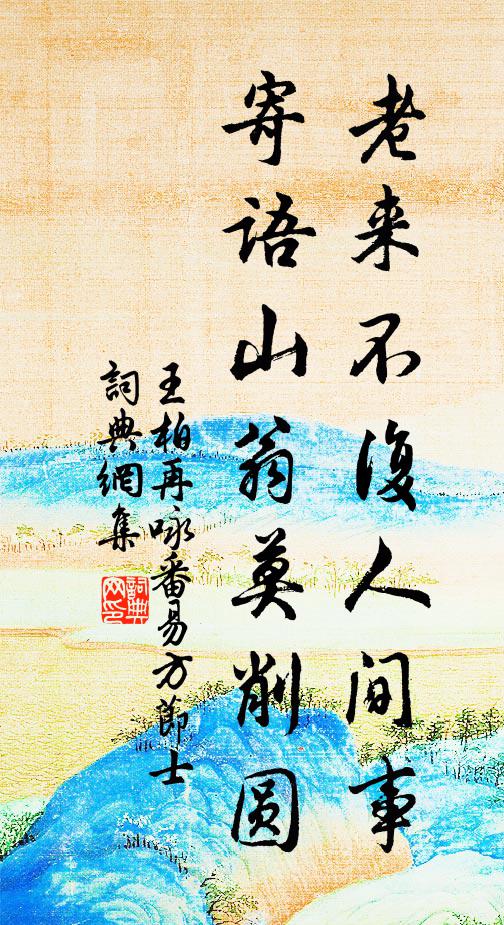 老来不復人間事
寄語山翁莫削圆
王柏再咏番易方節士
詞典網集
詞典
网印